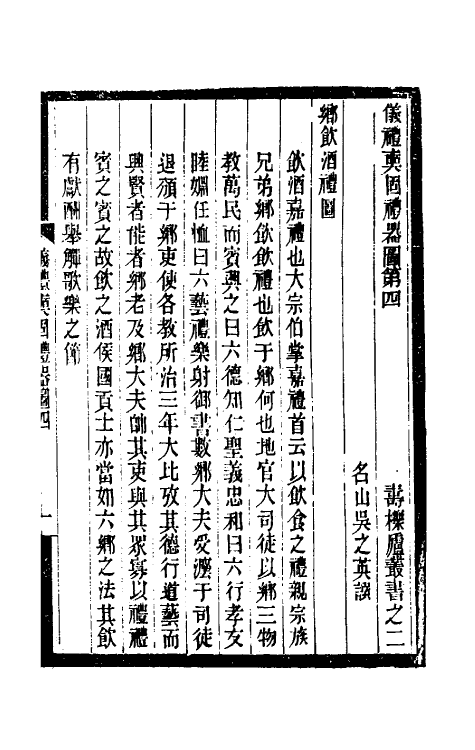 儀禮奭固禮器圖第四　壽櫟廬叢書之二
名山吳之英譔
鄉飲酒禮圖
飲酒嘉禮也大宗伯掌嘉禮首云以飲食之禮親宗族
兄弟鄉飲飲禮也飲于鄉何也地官大司徒以鄉三物
教萬民而賓興之曰六德知仁聖義忠和曰六行孝友
睦婣任恤曰六藝禮樂射御書數鄉大夫受灋于司徒
退頒于鄉吏使各教所治三年大比攷其德行道藝而
興賢者能者鄉老及鄉大夫帥其吏與其眾寡以禮禮
賓之賓之故飲之酒侯國貢士亦當如六鄉之法其飲
有獻酬舉觶歌樂之節
儀禮奭固禮器圖四　一